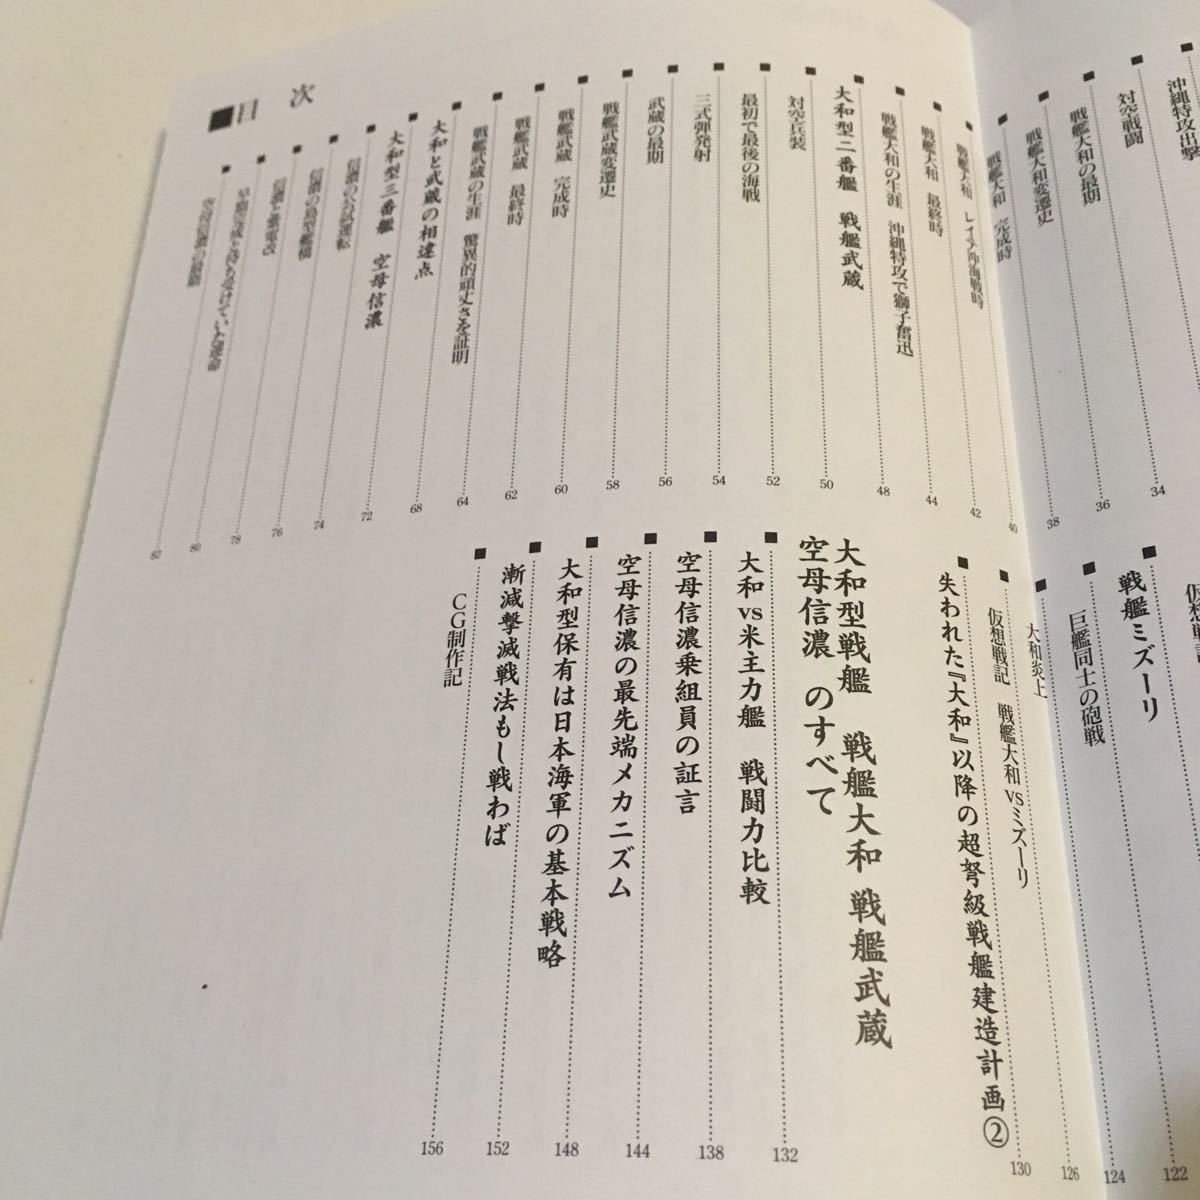 沖縄特攻出撃
対空戦闘
戦艦大和の最期 34
戦艦大和変遷史 36
戦艦大和 完成時 38
戦艦大和 レイテ沖海戦時 40
戦艦大和 最終時 42
戦艦大和の生涯 沖縄特攻で獅子奮迅 44
大和型二番艦 戦艦武蔵 48
対空兵装 50
最初で最後の海戦 52
三式弾発射 54
武蔵の最期 56
戦艦武蔵変遷史 58
戦艦武蔵 完成時 60
戦艦武蔵 最終時 62
戦艦武蔵の生涯 驚異的頑丈さを証明 64
大和と武蔵の相違点 68
大和型三番艦 空母信濃 72
信濃の公試運転 74
信濃の島型艦橋 76
信濃と紫電改 78
早期完成と待ち受けていた運命 80
空母信濃の最期 82
■目 次
戦艦ミズーリ
巨艦同士の砲戦 122
大和炎上 124
仮想戦記 戦艦大和vsミズーリ 126
失われた『大和』以降の超弩級戦艦建造計画② 130
大和型戦艦 戦艦大和 戦艦武蔵
空母信濃 のすべて
大和vs米主力艦 戦闘力比較 132
空母信濃乗組員の証言 138
空母信濃の最先端メカニズム 144
大和型保有は日本海軍の基本戦略 148
漸減撃滅戦法もし戦わば 152
CG制作記 156